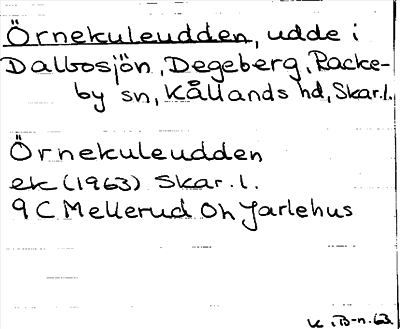 Örnekuleudden, udde i
Dalbosjön, Degeberg, Racke-
by sn, Kållands hd, Skar.l.
Örnekuleudden
ek (1963) Skar.l.
9C Mellerud Oh Jarlehus
K. B-n. 63.